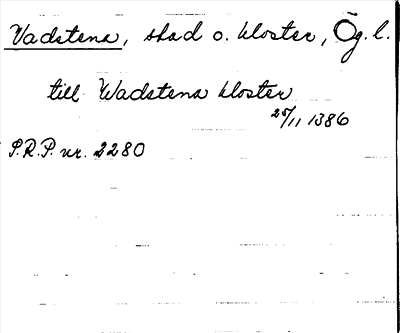 Vadstena, stad o. kloster, Ög. l.
till Wadstena kloster
25/11 1386
S.R.P. nr. 2280